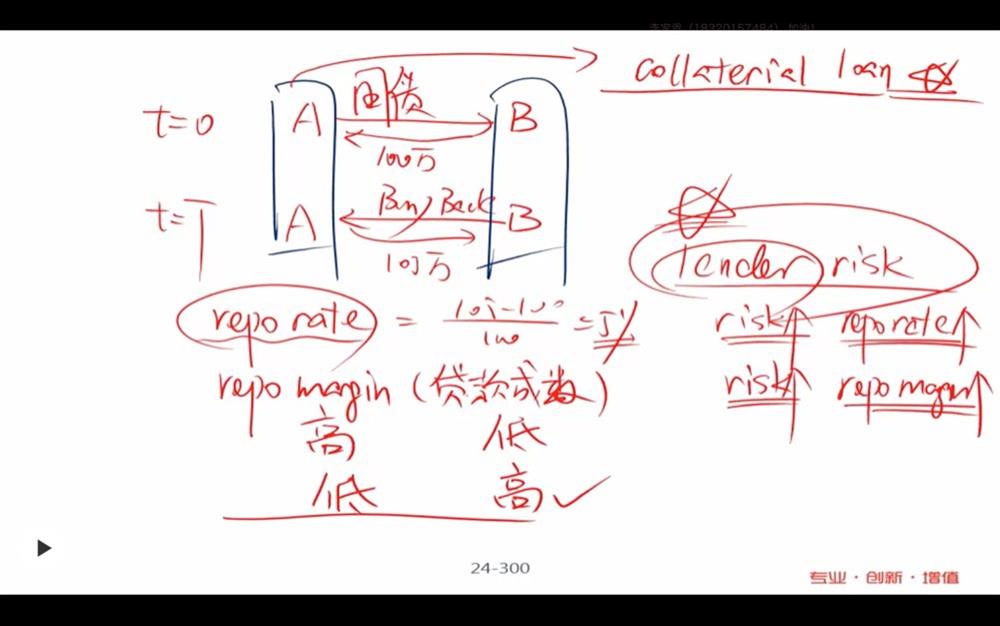 collaterial loan
国债
t=0 A B
100万
Buy Back
t=T A B
105万
lender risk
repo rate = 105-100 / 100 = 5%
risk↑ repo rate↑
repo margin (贷款成数)
risk↑ repo margin↑
高 低
低 高✓
24-300
专业·创新·增值